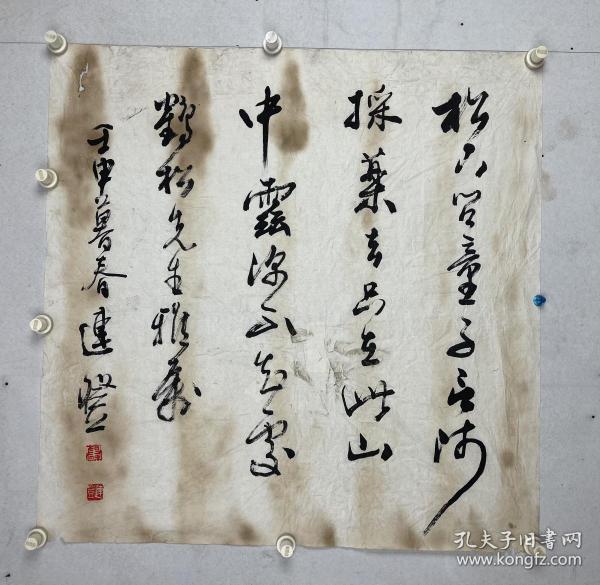 松下問童子言师
採藥去只在此山
中雲深不知處
鶴松先生雅屬
壬申暮春連
孔夫子旧书网
www.kongfz.com